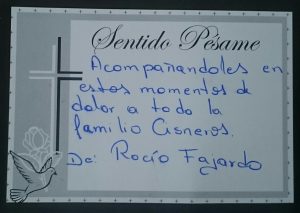 Sentido Pésame
Acompañandoles en
estos momentos de
dolor a toda la
familia Cisneros.
De: Rocío Fajardo